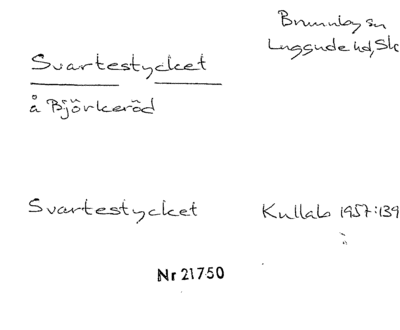 Brunnby sn
Luggude hd, Sk
Svartestycket
å Björkeröd
Svartestycket Kullab 1957:139
Nr 21750